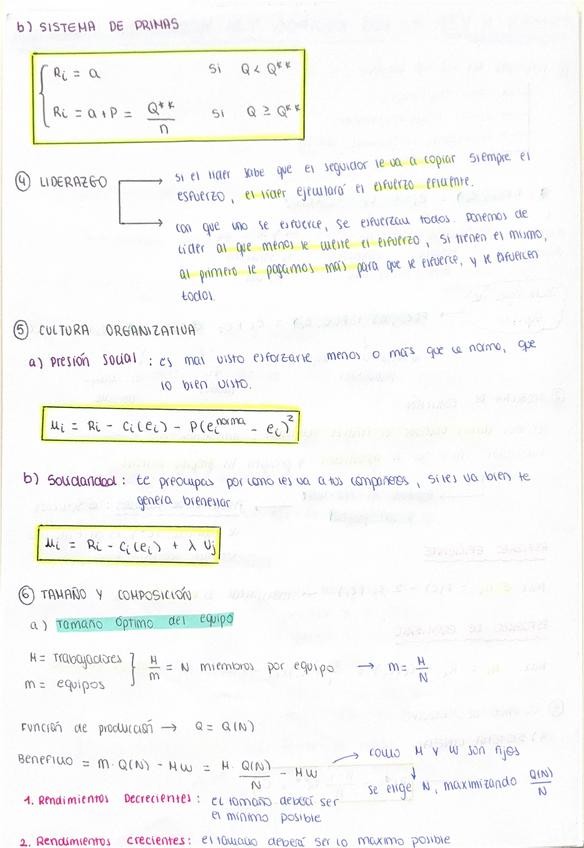 b) SISTEMA DE PRIMAS
Ri = a si Q < Q**
Ri = a + P = Q**/n si Q ≥ Q**
④ LIDERAZGO → si el lider sabe que el seguidor le va a copiar siempre el
esfuerzo, el lider ejecutará el esfuerzo eficiente.
→ con que uno se esfuerce, se esfuerzan todos. Ponemos de
lider al que menos le cueste el esfuerzo, si tienen el mismo,
al primero le pagamos más para que se esfuerce, y se esfuercen
todos.
⑤ CULTURA ORGANIZATIVA
a) Presión social : es mal visto esforzarse menos o más que la norma, que
lo bien visto.
μi = Ri - Ci(ei) - P(ei^norma - ei)²
b) Solidaridad : te preocupas por como les va a tus compañeros, si les va bien te
genera bienestar
μi = Ri - Ci(ei) + λ Uj
⑥ TAMAÑO Y COMPOSICIÓN
a) Tamaño óptimo del equipo
M = Trabajadores } M/m = N miembros por equipo → m = M/N
m = equipos
Función de producción → Q = Q(N)
Beneficio = m · Q(N) - MW = M · Q(N)/N - MW → como M y W son fijos
↓ se elige N, maximizando Q(N)/N
1. Rendimientos Decrecientes : el tamaño deberá ser
el mínimo posible
2. Rendimientos crecientes : el tamaño deberá ser lo máximo posible